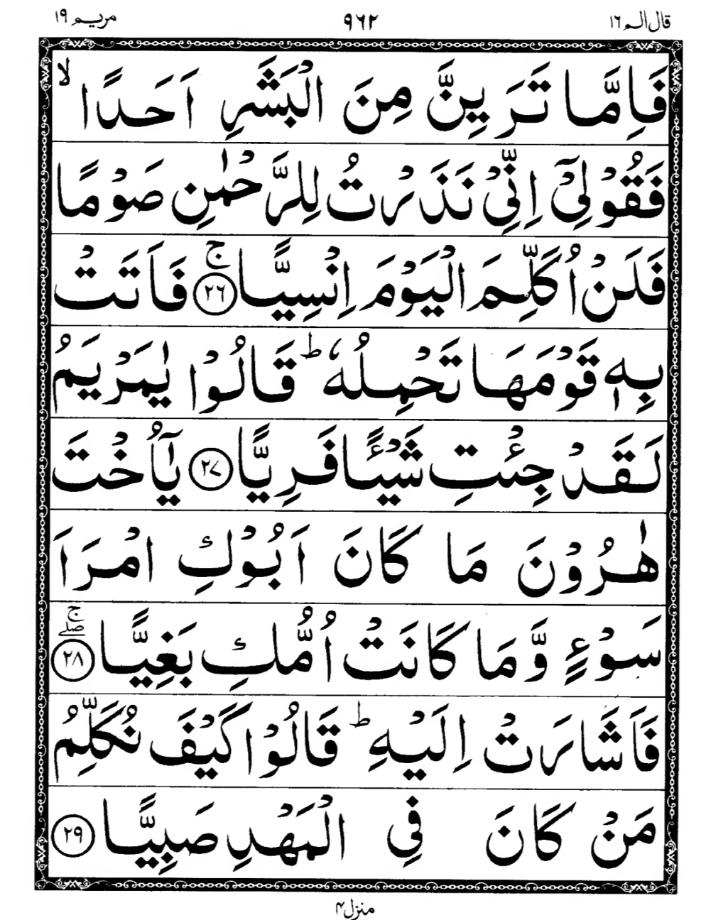 قال الم ١٦ ٩٦٢ مريم ١٩
فَاِمَّا تَرَيِنَّ مِنَ الْبَشَرِ اَحَدًا ۙ
فَقُوْلِيْۤ اِنِّيْ نَذَرْتُ لِلرَّحْمٰنِ صَوْمًا
فَلَنْ اُكَلِّمَ الْيَوْمَ اِنْسِيًّا ۚ ﴿٢٦﴾ فَاَتَتْ
بِهٖ قَوْمَهَا تَحْمِلُهٗ ؕ قَالُوْا يٰمَرْيَمُ
لَقَدْ جِئْتِ شَيْـًٔا فَرِيًّا ﴿٢٧﴾ يٰۤاُخْتَ
هٰرُوْنَ مَا كَانَ اَبُوْكِ امْرَاَ
سَوْءٍ وَّمَا كَانَتْ اُمُّكِ بَغِيًّا ۖۚ ﴿٢٨﴾
فَاَشَارَتْ اِلَيْهِ ؕ قَالُوْا كَيْفَ نُكَلِّمُ
مَنْ كَانَ فِي الْمَهْدِ صَبِيًّا ﴿٢٩﴾
منزل ۴